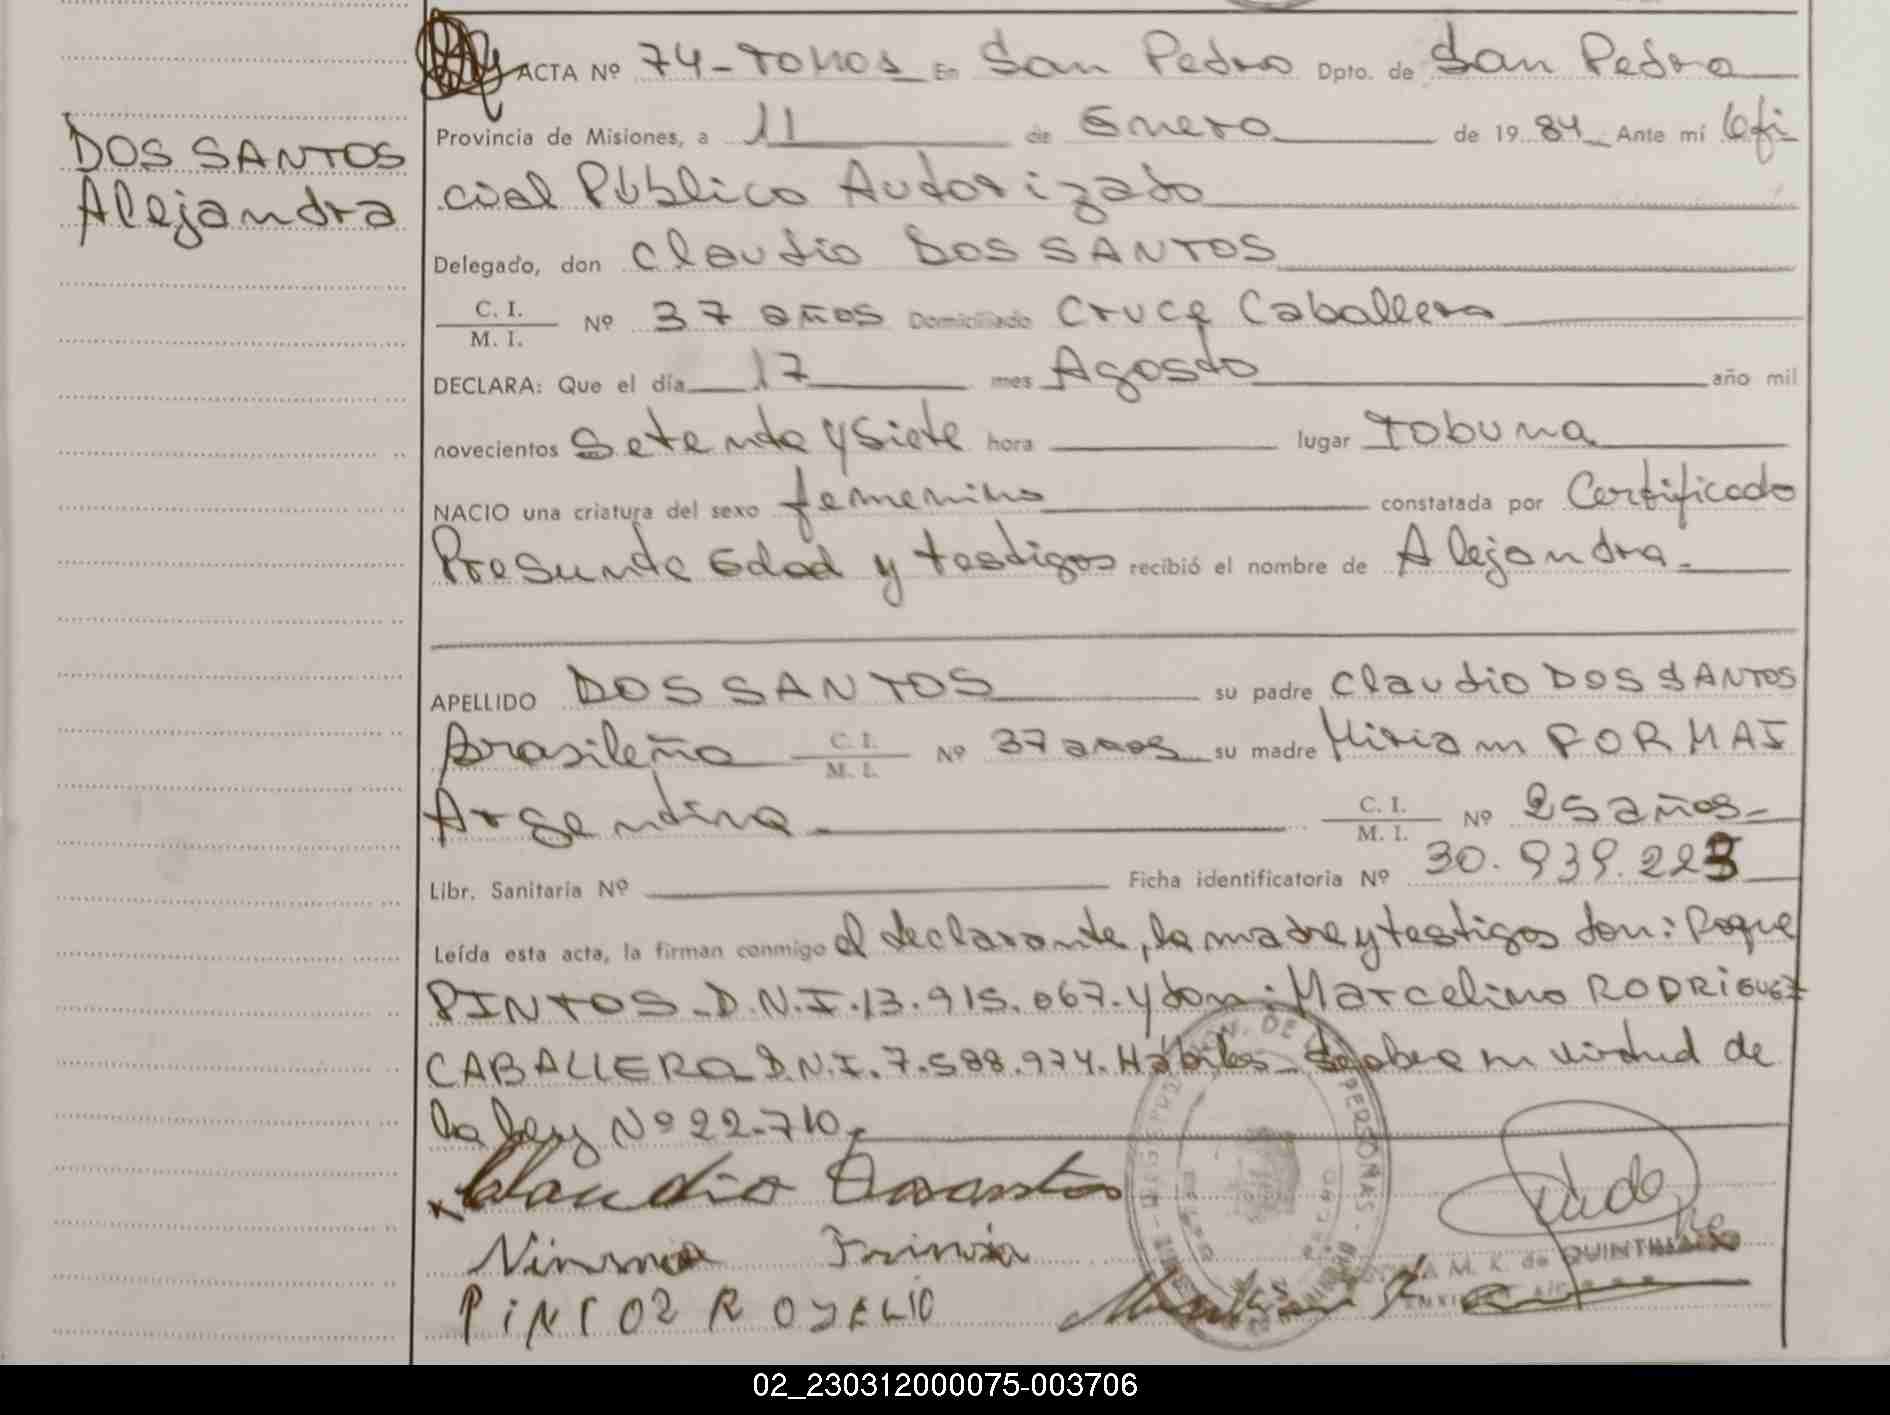 DOS SANTOS
Alejandra
ACTA Nº 74 - TOMO 1 En San Pedro Dpto. de San Pedro
Provincia de Misiones, a 11 de Enero de 1984 Ante mí Ofi
cial Público Autorizado
Delegado, don Claudio DOS SANTOS
C. I.
M. I. Nº 37 años Domiciliado Cruce Caballero
DECLARA: Que el día 17 mes Agosto año mil
novecientos Setenta y Siete hora lugar Tobuna
NACIO una criatura del sexo femenino constatada por Certificado
Presunta Edad y testigos recibió el nombre de Alejandra.-
APELLIDO DOS SANTOS su padre Claudio DOS SANTOS
Brasileño C. I. M. I. Nº 37 años su madre Miriam
Argentina.- C. I. M. I. Nº 25 años-
Libr. Sanitaria Nº Ficha identificatoria Nº 30.939.223
Leída esta acta, la firman conmigo el declarante, la madre y testigos don: Roque
PINTOS - D.N.I. 13.915.067. y don: Marcelino RODRIGUEZ
CABALLERO D.N.I. 7.588.974. Hábiles - en virtud de
la ley Nº 22.710.-
Claudio
PINTOZ ROJELIO
M. K. de QUINTANA
02_230312000075-003706